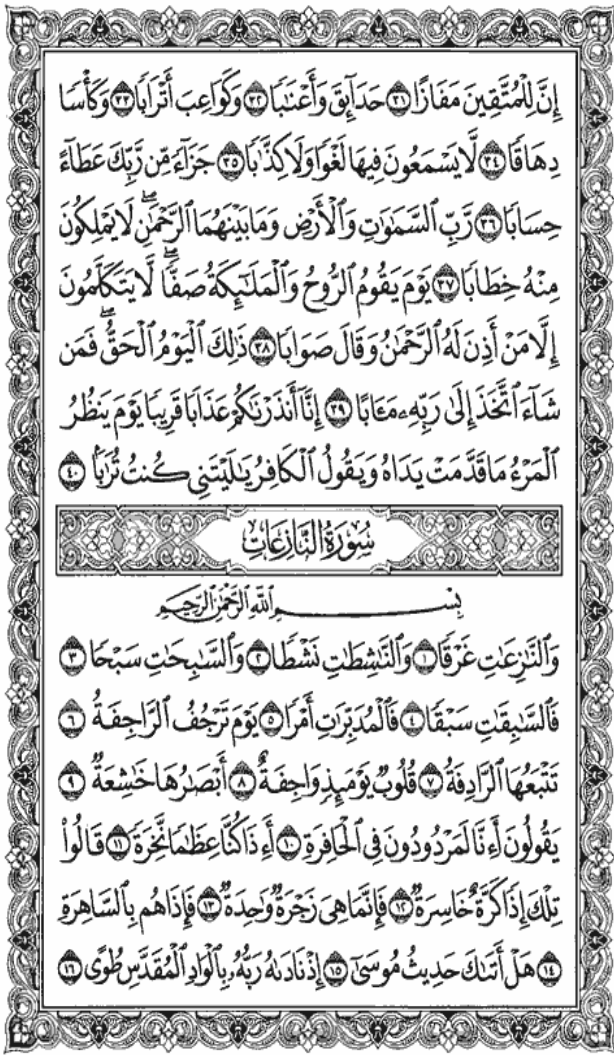 إِنَّ لِلْمُتَّقِينَ مَفَازًا ٣١ حَدَآئِقَ وَأَعْنَٰبًا ٣٢ وَكَوَاعِبَ أَتْرَابًا ٣٣ وَكَأْسًا
دِهَاقًا ٣٤ لَّا يَسْمَعُونَ فِيهَا لَغْوًا وَلَا كِذَّٰبًا ٣٥ جَزَآءً مِّن رَّبِّكَ عَطَآءً
حِسَابًا ٣٦ رَّبِّ السَّمَٰوَٰتِ وَالْأَرْضِ وَمَا بَيْنَهُمَا الرَّحْمَٰنِ ۖ لَا يَمْلِكُونَ
مِنْهُ خِطَابًا ٣٧ يَوْمَ يَقُومُ الرُّوحُ وَالْمَلَٰٓئِكَةُ صَفًّا ۖ لَّا يَتَكَلَّمُونَ
إِلَّا مَنْ أَذِنَ لَهُ الرَّحْمَٰنُ وَقَالَ صَوَابًا ٣٨ ذَٰلِكَ الْيَوْمُ الْحَقُّ ۖ فَمَن
شَآءَ اتَّخَذَ إِلَىٰ رَبِّهِۦ مَـَٔابًا ٣٩ إِنَّآ أَنذَرْنَٰكُمْ عَذَابًا قَرِيبًا يَوْمَ يَنظُرُ
الْمَرْءُ مَا قَدَّمَتْ يَدَاهُ وَيَقُولُ الْكَافِرُ يَٰلَيْتَنِي كُنتُ تُرَٰبًا ٤٠
سُورَةُ النَّازِعَاتِ
بِسْمِ اللَّهِ الرَّحْمَٰنِ الرَّحِيمِ
وَالنَّٰزِعَٰتِ غَرْقًا ١ وَالنَّٰشِطَٰتِ نَشْطًا ٢ وَالسَّٰبِحَٰتِ سَبْحًا ٣
فَالسَّٰبِقَٰتِ سَبْقًا ٤ فَالْمُدَبِّرَٰتِ أَمْرًا ٥ يَوْمَ تَرْجُفُ الرَّاجِفَةُ ٦
تَتْبَعُهَا الرَّادِفَةُ ٧ قُلُوبٌ يَوْمَئِذٍ وَاجِفَةٌ ٨ أَبْصَٰرُهَا خَٰشِعَةٌ ٩
يَقُولُونَ أَءِنَّا لَمَرْدُودُونَ فِي الْحَافِرَةِ ١٠ أَءِذَا كُنَّا عِظَٰمًا نَّخِرَةً ١١ قَالُوا۟
تِلْكَ إِذًا كَرَّةٌ خَاسِرَةٌ ١٢ فَإِنَّمَا هِيَ زَجْرَةٌ وَٰحِدَةٌ ١٣ فَإِذَا هُم بِالسَّاهِرَةِ
١٤ هَلْ أَتَىٰكَ حَدِيثُ مُوسَىٰٓ ١٥ إِذْ نَادَىٰهُ رَبُّهُۥ بِالْوَادِ الْمُقَدَّسِ طُوًى ١٦